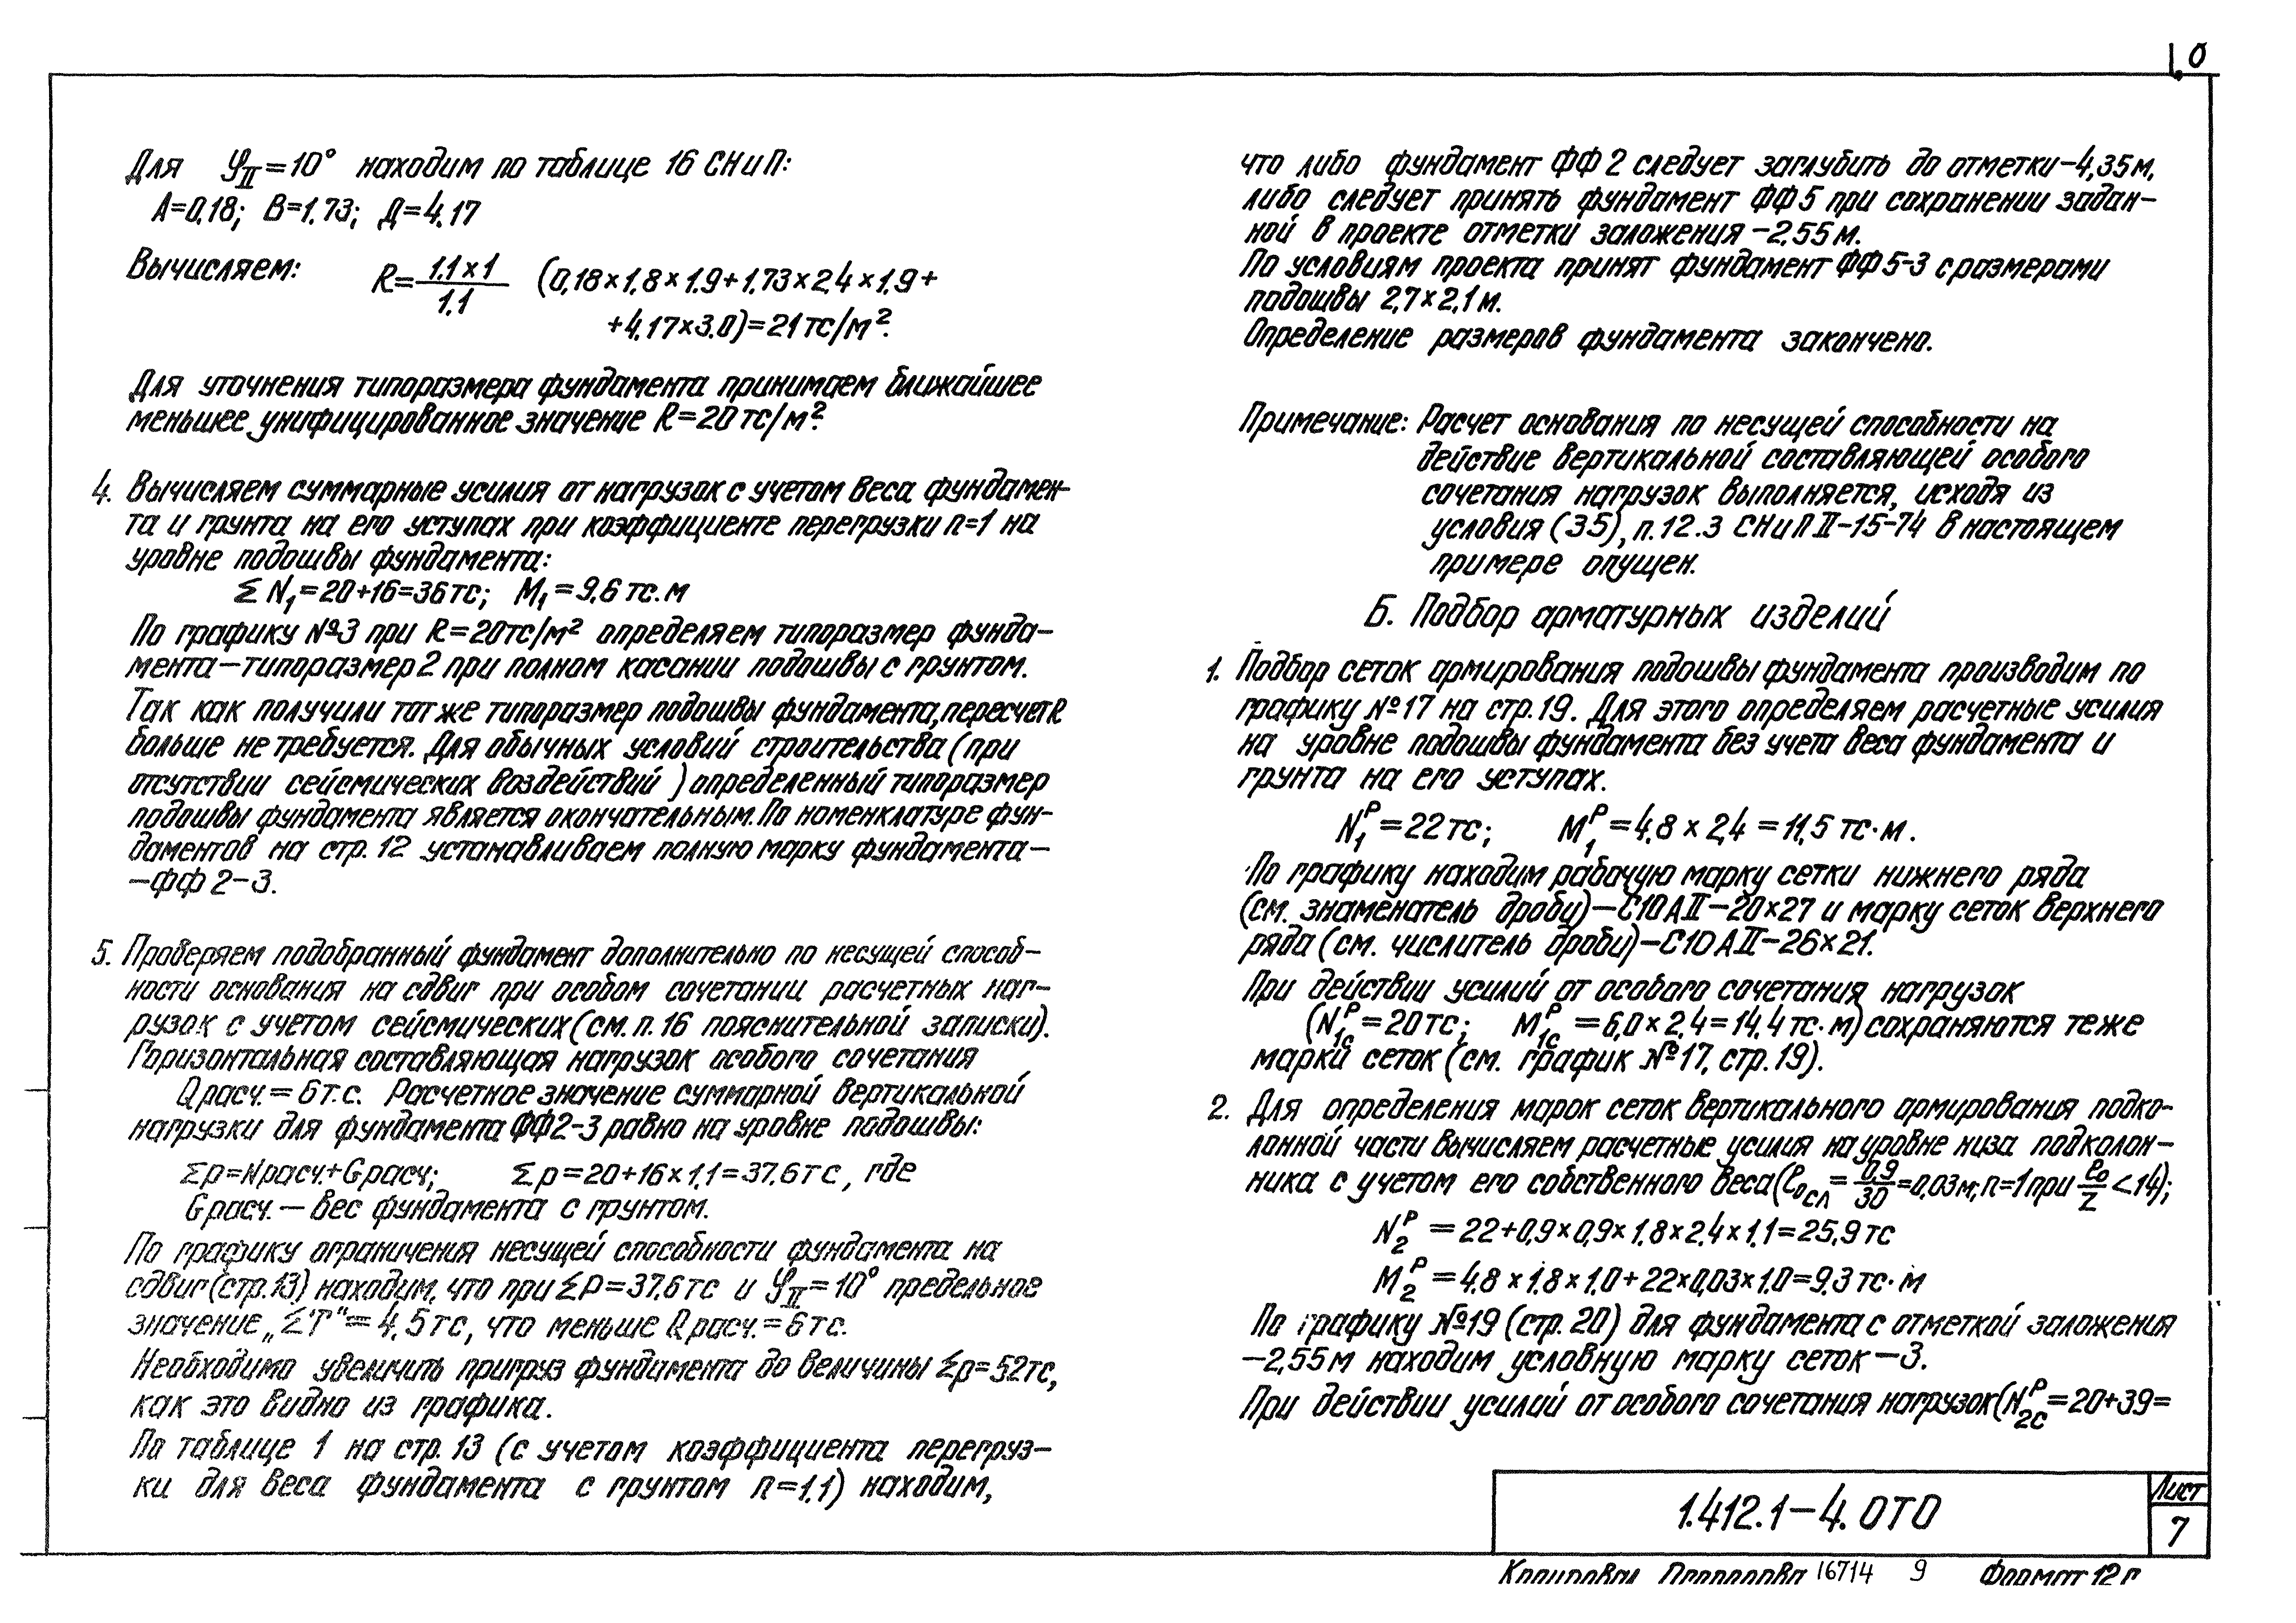 1.0
Для φII=10° находим по таблице 16 СНиП:
А=0,18; В=1,73; Д=4,17
Вычисляем: R= 1,1×1/1,1 (0,18×1,8×1,9+1,73×2,4×1,9+
+4,17×3,0)=21тс/м².
Для уточнения типоразмера фундамента принимаем ближайшее
меньшее унифицированное значение R=20тс/м².
4. Вычисляем суммарные усилия от нагрузок с учетом веса фундамен-
та и грунта на его уступах при коэффициенте перегрузки n=1 на
уровне подошвы фундамента:
Σ N1=20+16=36тс; М1=9,6 тс.м
По графику №3 при R=20тс/м² определяем типоразмер фунда-
мента-типоразмер 2 при полном касании подошвы с грунтом.
Так как получили тот же типоразмер подошвы фундамента, пересчет R
больше не требуется. Для обычных условий строительства (при
отсутствии сейсмических воздействий) определенный типоразмер
подошвы фундамента является окончательным. По номенклатуре фун-
даментов на стр. 12 устанавливаем полную марку фундамента-
-ФФ2-3.
5. Проверяем подобранный фундамент дополнительно по несущей способ-
ности основания на сдвиг при особом сочетании расчетных наг-
рузок с учетом сейсмических (см. п. 16 пояснительной записки).
Горизонтальная составляющая нагрузок особого сочетания
Qрасч.=6т.с. Расчетное значение суммарной вертикальной
нагрузки для фундамента ФФ2-3 равно на уровне подошвы:
Σр=Nрасч.+Gрасч; Σр=20+16×1,1=37,6тс, где
Gрасч.- вес фундамента с грунтом.
По графику ограничения несущей способности фундамента на
сдвиг (стр. 13) находим, что при Σр=37,6тс и φII=10° предельное
значение „ΣТ"=4,5тс, что меньше Qрасч.=6тс.
Необходимо увеличить пригруз фундамента до величины Σр=52тс,
как это видно из графика.
По таблице 1 на стр. 13 (с учетом коэффициента перегруз-
ки для веса фундамента с грунтом n=1,1) находим,
что либо фундамент ФФ2 следует заглубить до отметки-4,35м,
либо следует принять фундамент ФФ5 при сохранении задан-
ной в проекте отметки заложения -2,55м.
По условиям проекта принят фундамент ФФ5-3 с размерами
подошвы 2,7×2,1м.
Определение размеров фундамента закончено.
Примечание: Расчет основания по несущей способности на
действие вертикальной составляющей особого
сочетания нагрузок выполняется, исходя из
условия (35), п. 12.3 СНиП II-15-74 в настоящем
примере опущен.
Б. Подбор арматурных изделий
1. Подбор сеток армирования подошвы фундамента производим по
графику №17 на стр. 19. Для этого определяем расчетные усилия
на уровне подошвы фундамента без учета веса фундамента и
грунта на его уступах.
N1р=22тс; М1р=4,8×2,4=11,5 тс·м.
По графику находим рабочую марку сетки нижнего ряда
(см. знаменатель дроби)-С10АII-20×27 и марку сеток верхнего
ряда (см. числитель дроби)-С10АII-26×21.
При действии усилий от особого сочетания нагрузок
(N1ср=20тс; М1ср=6,0×2,4=14,4тс·м) сохраняются теже
марки сеток (см. график №17, стр. 19).
2. Для определения марок сеток вертикального армирования подко-
лонной части вычисляем расчетные усилия на уровне низа подколон-
ника с учетом его собственного веса (eосл=0,9/30=0,03м; n=1 при eо/Z<14);
N2р=22+0,9×0,9×1,8×2,4×1,1=25,9тс
М2р=4,8×1,8×1,0+22×0,03×1,0=9,3тс·м
По графику №19 (стр. 20) для фундамента с отметкой заложения
-2,55м находим условную марку сеток-3.
При действии усилий от особого сочетания нагрузок (N2ср=20+39=
1.412.1-4. ОТО
Лист
7
Копировал 16714 9 Формат 12г